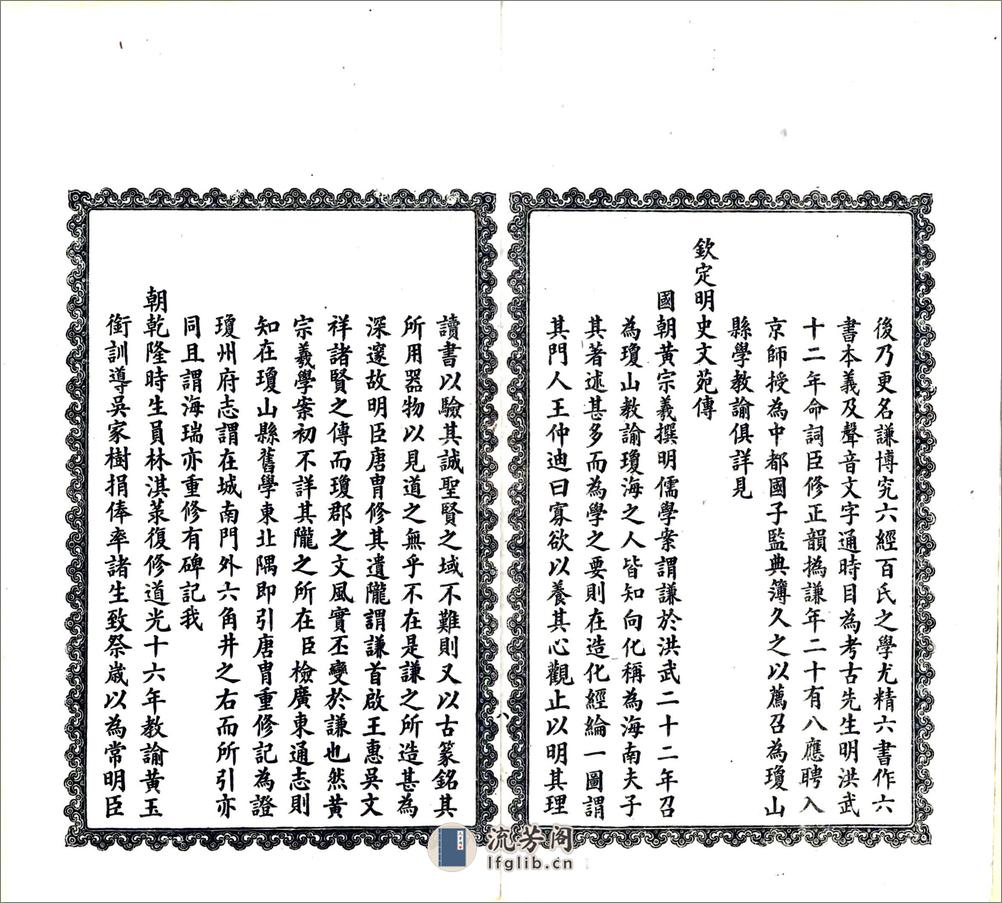 後乃更名謙博究六經百氏之學尤精六書作六
書本義及聲音文字通時目為考古先生明洪武
十二年命詞臣修正韻撝謙年二十有八應聘入
京師授為中都國子監典簿久之以薦召為瓊山
縣學教諭俱詳見
欽定明史文苑傳
國朝黃宗羲撰明儒學案謂謙於洪武二十二年召
為瓊山教諭瓊海之人皆知向化稱為海南夫子
其著述甚多而為學之要則在造化經綸一圖謂
其門人王仲迪曰寡欲以養其心觀止以明其理
八
讀書以驗其誠聖賢之域不難則又以古篆銘其
所用器物以見道之無乎不在是謙之所造甚為
深邃故明臣唐冑修其遺隴謂謙首啟王惠吳文
祥諸賢之傳而瓊郡之文風實丕變於謙也然黃
宗羲學案初不詳其隴之所在臣檢廣東通志則
知在瓊山縣舊學東北隅即引唐冑重修記為證
瓊州府志謂在城南門外六角井之右而所引亦
同且謂海瑞亦重修有碑記我
朝乾隆時生員林淇菉復修道光十六年教諭黃玉
衔訓導吳家樹捐俸率諸生致祭歲以為常明臣
流芳阁
lfglib.cn